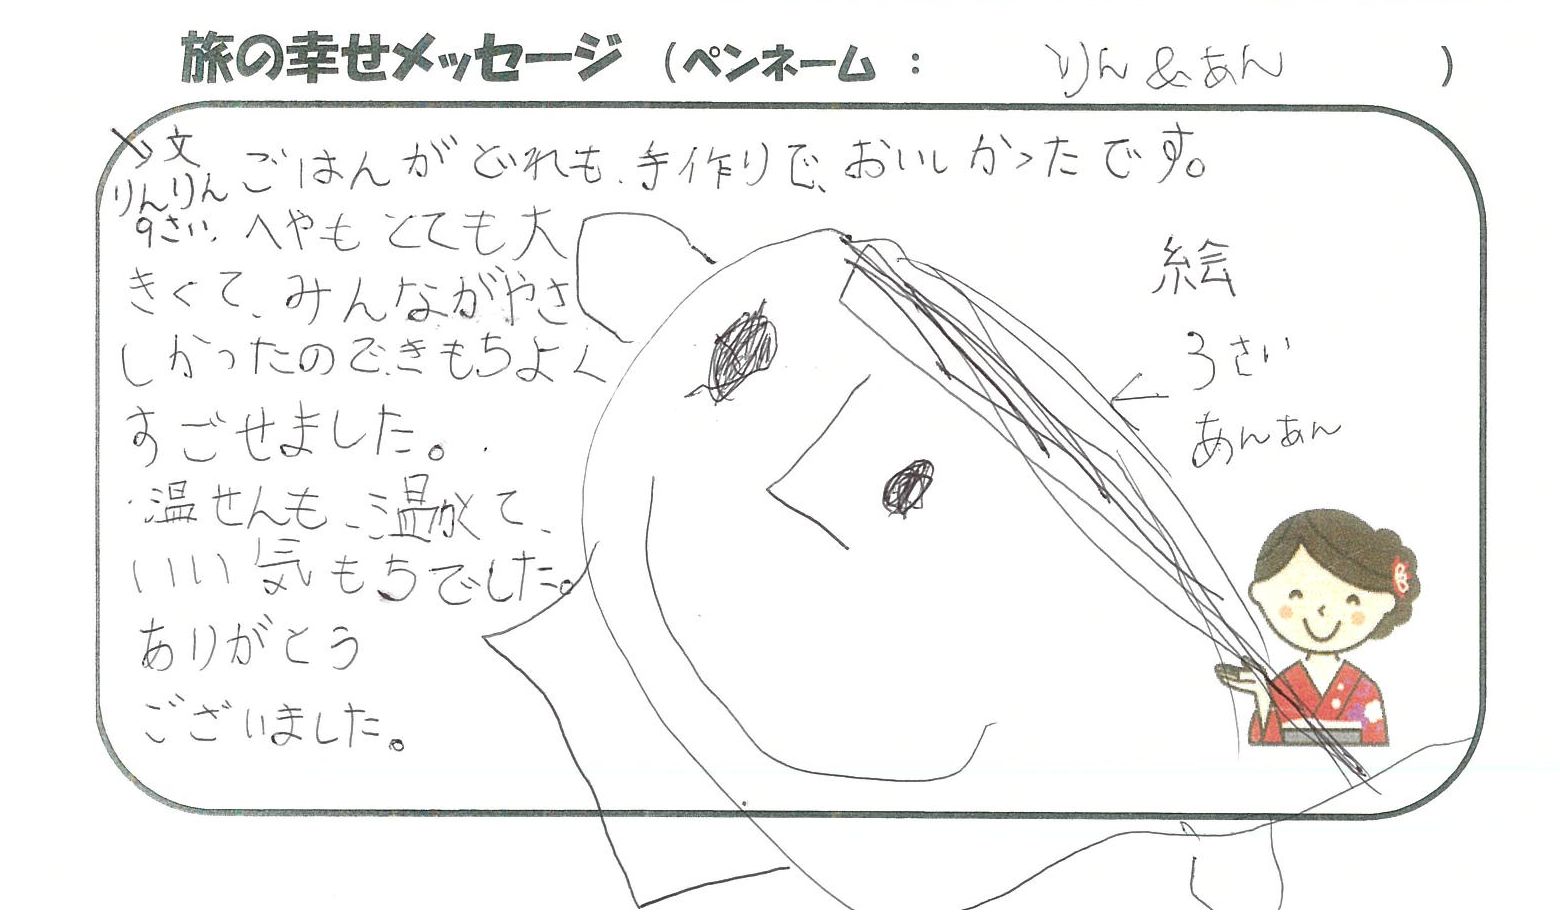 旅の幸せメッセージ (ペンネーム : りん&あん )
文
りんりん
9さい
ごはんがどれも、手作りで、おいしかったです。
へやもとても大
きくて、みんながやさ
しかったのできもちよく
すごせました。
温せんも、温かくて、
いい気もちでした。
ありがとう
ございました。
絵
3さい
あんあん